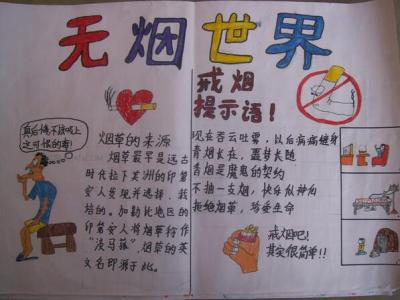 无烟世界
戒烟
提示语!
真后悔不该吸上
这可恨的毒!
烟草的来源
烟草最早是远古
时代拉丁美洲的印第
安人发现并选择、栽
培的。加勒比地区的
印第安人将烟草称作
"淡马菰",烟草的英
文名即源于此。
现在吞云吐雾,以后病痛缠身
青烟长在,噩梦长随
香烟是魔鬼的契约
不抽一支烟,快乐似神仙
拒绝烟草,珍爱生命
戒烟吧!
其实很简单!!